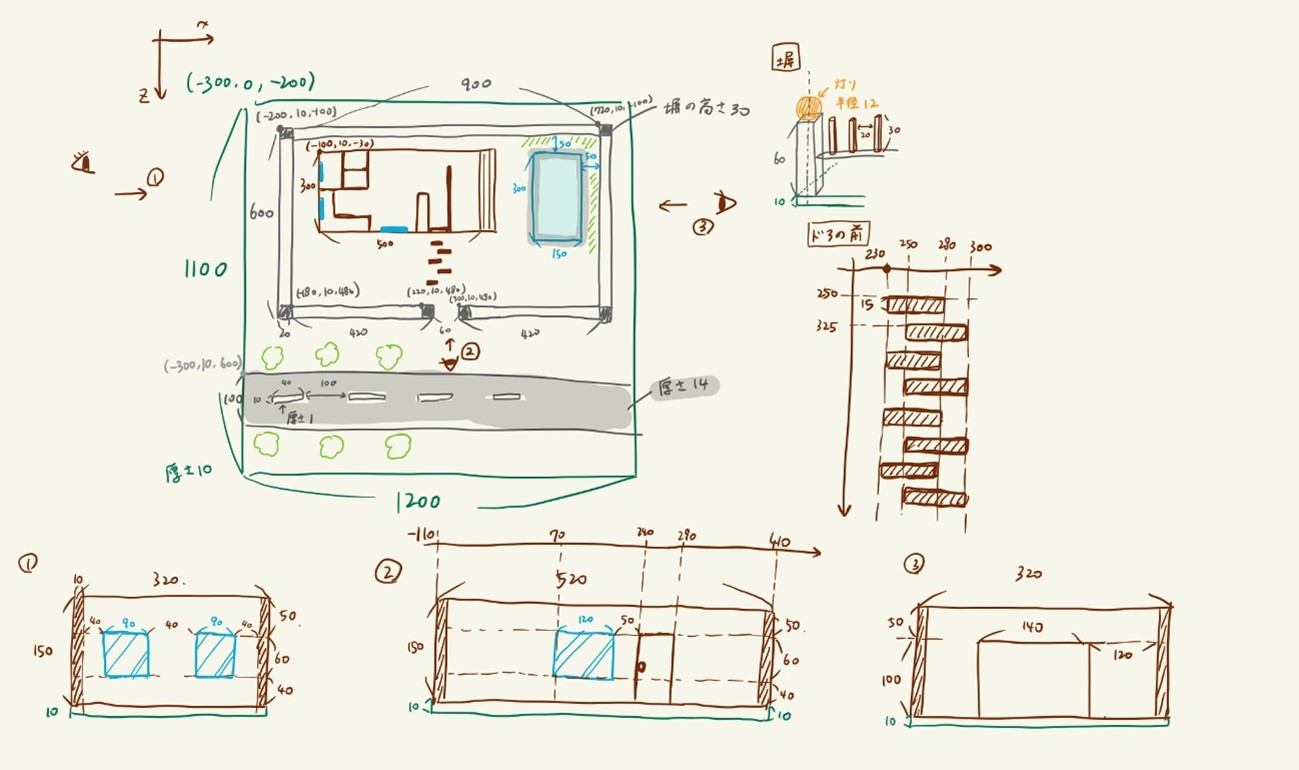 x
z
(-300, 0, -200)
900
(-200, 10, -100)
(720, 10, -100)
塀の高さ30
①
(-100, 10, -30)
300
500
50
30
300
150
③
600
1100
(-180, 10, 480)
(220, 10, 480)
(300, 10, 480)
20
420
60
420
②
(-300, 10, 600)
100
40
100
10
厚さ1
厚さ14
厚さ10
1200
塀
灯り
半径12
60
20
30
10
ドアの前
230
250
280
300
250
15
325
①
10
320.
40
90
40
90
40
50.
150
60
40
10
②
-110
70
240
290
410
520
120
50
50.
150
60
40
10
10
③
320
50
140
120
100
10